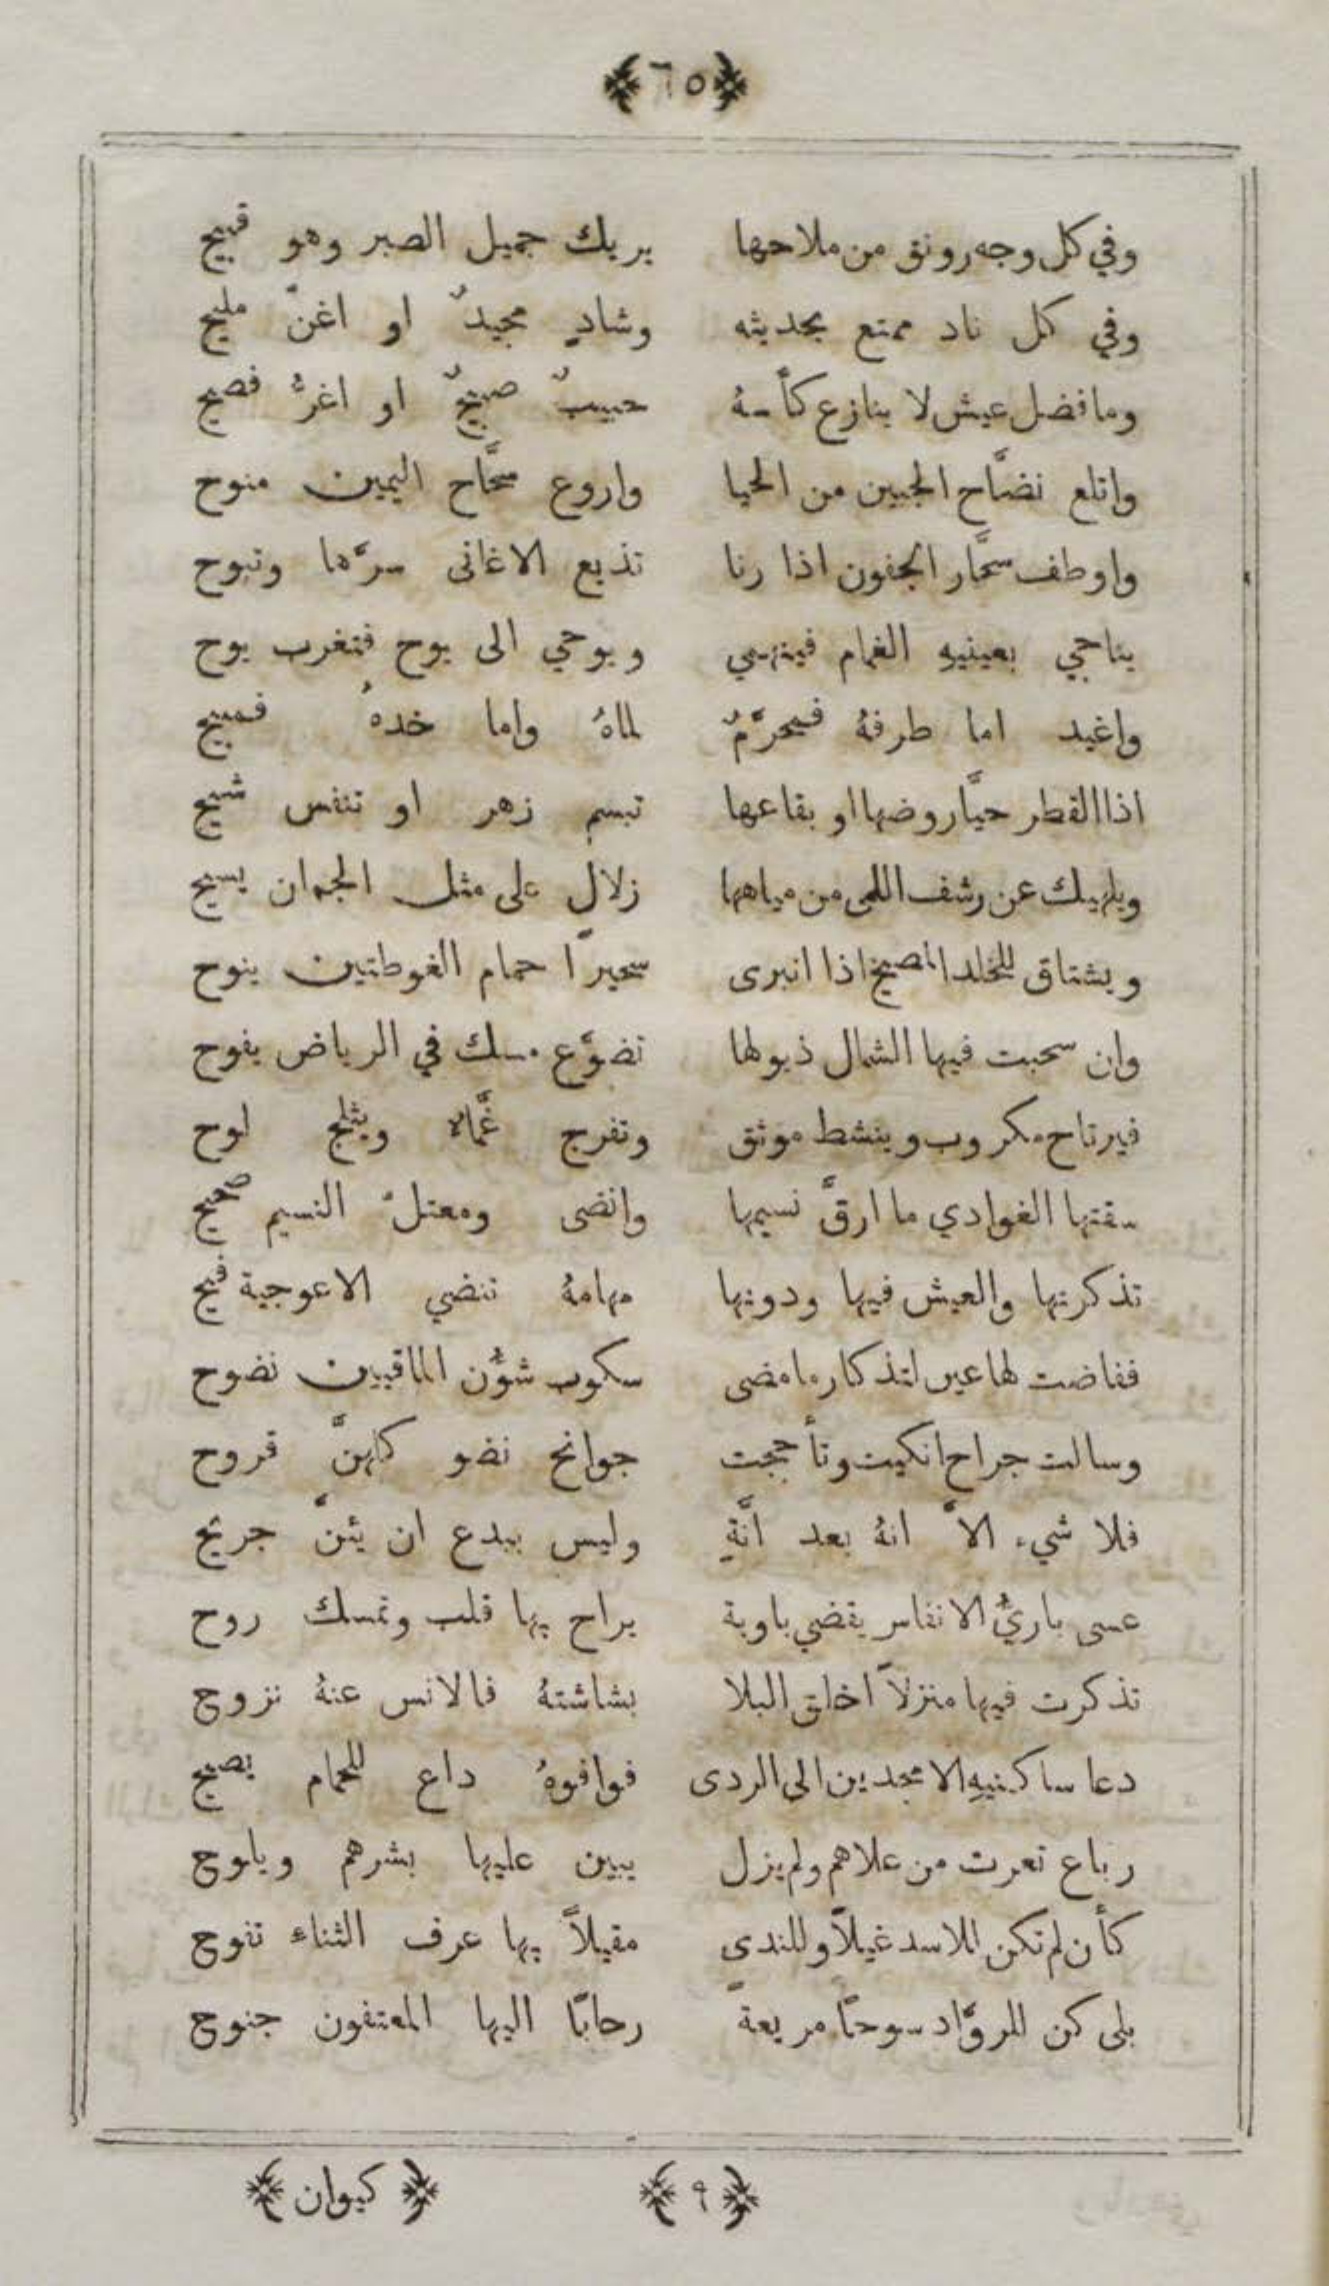 ﴿٦٥﴾
وفي كل وجه رونق من ملاحها يريك جميل الصبر وهو قبيح
وفي كل ناد ممتع بحديثه وشادٍ مجيدٌ او اغنّ مليح
وما فضل عيش لا ينازع كأسهُ حبيبٌ صبيحٌ او اغرُّ فصيح
واتلع نضَّاح الجبين من الحيا واروع سحَّاح اليمين منوح
واوطف سحَّار الجفون اذا رنا تذيع الاغانى سرَّها وتبوح
يناجي بعينيهِ الغمام فينهمي ويوحي الى يوح فتغرب يوح
واغيد اما طرفهُ فيحرَّمٌ لماهُ واما خدهُ فمبيح
اذا القطر حيَّا روضها او بقاعها تبسم زهر او تنفس شيح
ويلهيك عن رشف اللمى من مياهها زلالٍ على مثل الجمان يسيح
ويشتاق للخلد المصيخ اذا انبرى سحيرًا حمام الغوطتين ينوح
وان سحبت فيها الشمال ذيولها تضوَّع مسك في الرياض يفوح
فيرتاح مكروب وينشط موثق وتفرج غمَّاء ويثلج لوح
سقتها الغوادي ما ارقَّ نسيمها وانضى ومعتلّ النسيم صحيح
تذكرتها والعيش فيها ودونها مهامهُ تنضي الاعوجية فيح
ففاضت لها عين لتذكار ما مضى سكوب شؤُن الماقيين نضوح
وسالت جراح انكيت وتأججت جوانح نضو كلهنَّ قروح
فلا شيء الاَّ انهُ بعد انَّةٍ وليس ببدع ان يئنَّ جريح
عسى باريُّ الانفاس يقضي باوبة يراح بها قلب وتمسك روح
تذكرت فيها منزلاً اخلق البلا بشاشتهُ فالانس عنهُ نزوح
دعا ساكنيهِ الامجدين الى الردى فوافوهُ داع للحمام يصيح
رباع تعرت من علاهم ولم يزل يبين عليها بشرهم ويلوح
كأن لم تكن للاسد غيلاً وللندى مقيلاً بها عرف الثناء تفوح
بلى كن للروَّاد سوحًا مريعةً رحابًا اليها المعتفون جنوح
﴿٩﴾ ﴿كيوان﴾